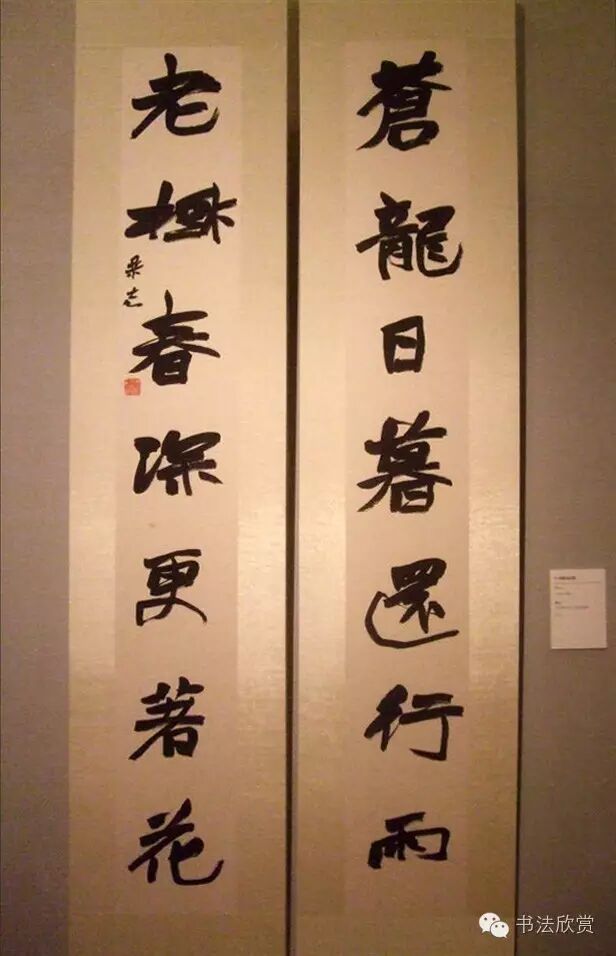 蒼龍日暮還行雨
老樹春深更著花
书法欣赏